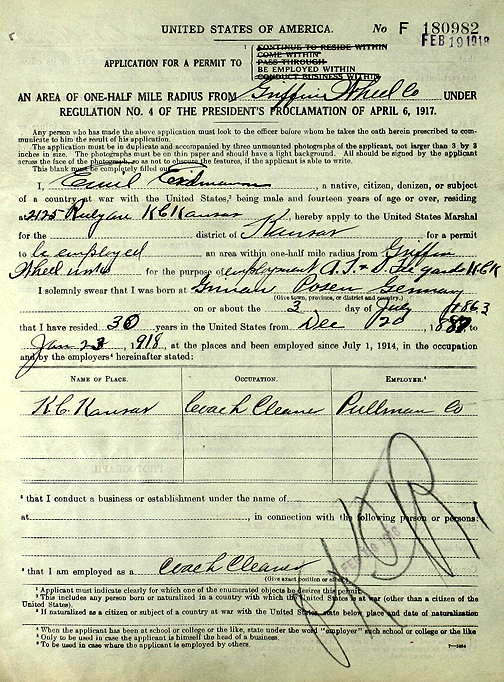 UNITED STATES OF AMERICA.
No F 180982
FEB 19 1918
APPLICATION FOR A PERMIT TO
¹ CONTINUE TO RESIDE WITHIN
COME WITHIN
PASS THROUGH
BE EMPLOYED WITHIN
CONDUCT BUSINESS WITHIN
AN AREA OF ONE-HALF MILE RADIUS FROM Griffin Wheel Co UNDER
REGULATION NO. 4 OF THE PRESIDENT'S PROCLAMATION OF APRIL 6, 1917.
Any person who has made the above application must look to the officer before whom he takes the oath herein prescribed to commu-
nicate to him the result of his application.
The application must be in duplicate and accompanied by three unmounted photographs of the applicant, not larger than 3 by 3
inches in size. The photographs must be on thin paper and should have a light background. All should be signed by the applicant
across the face of the photograph, so as not to obscure the features, if the applicant is able to write.
This blank must be completely filled out.
I, Emil Erdmann, a native, citizen, denizen, or subject
of a country at war with the United States,² being male and fourteen years of age or over, residing
at 2125 K C Kansas, hereby apply to the United States Marshal
for the district of Kansas for a permit
to be employed an area within one-half mile radius from Griffin
Wheel for the purpose of employment A. T. & S. Fe yards K C K
I solemnly swear that I was born at Posen Germany
(Give town, province, or district and country.)
on or about the 3 day of July, 1863
that I have resided 30 years in the United States from Dec 20, 1887 to
Jan 23, 1918, at the places and employed since July 1, 1914, in the occupation
and by the employers⁴ hereinafter stated:
NAME OF PLACE. OCCUPATION. EMPLOYER.⁴
K. C. Kansas Coach Cleaner Pullman Co
⁵ that I conduct a business or establishment under the name of
at, in connection with the following person or persons:
FEB 19 1918
⁶ that I am employed as a Coach Cleaner
(Give exact position or employ.)
¹ Applicant must indicate clearly for which one of the enumerated objects he desires this permit.
² This includes any person born or naturalized in a country with which the United States is at war (other than a citizen of the
United States).
³ If naturalized as a citizen or subject of a country at war with the United States, state below place and date of naturalization
⁴ When the applicant has been at school or college or the like, state under the word "employer" such school or college or the like
⁵ Only to be used in case the applicant is himself the head of a business.
⁶ To be used in case where the applicant is employed by others.